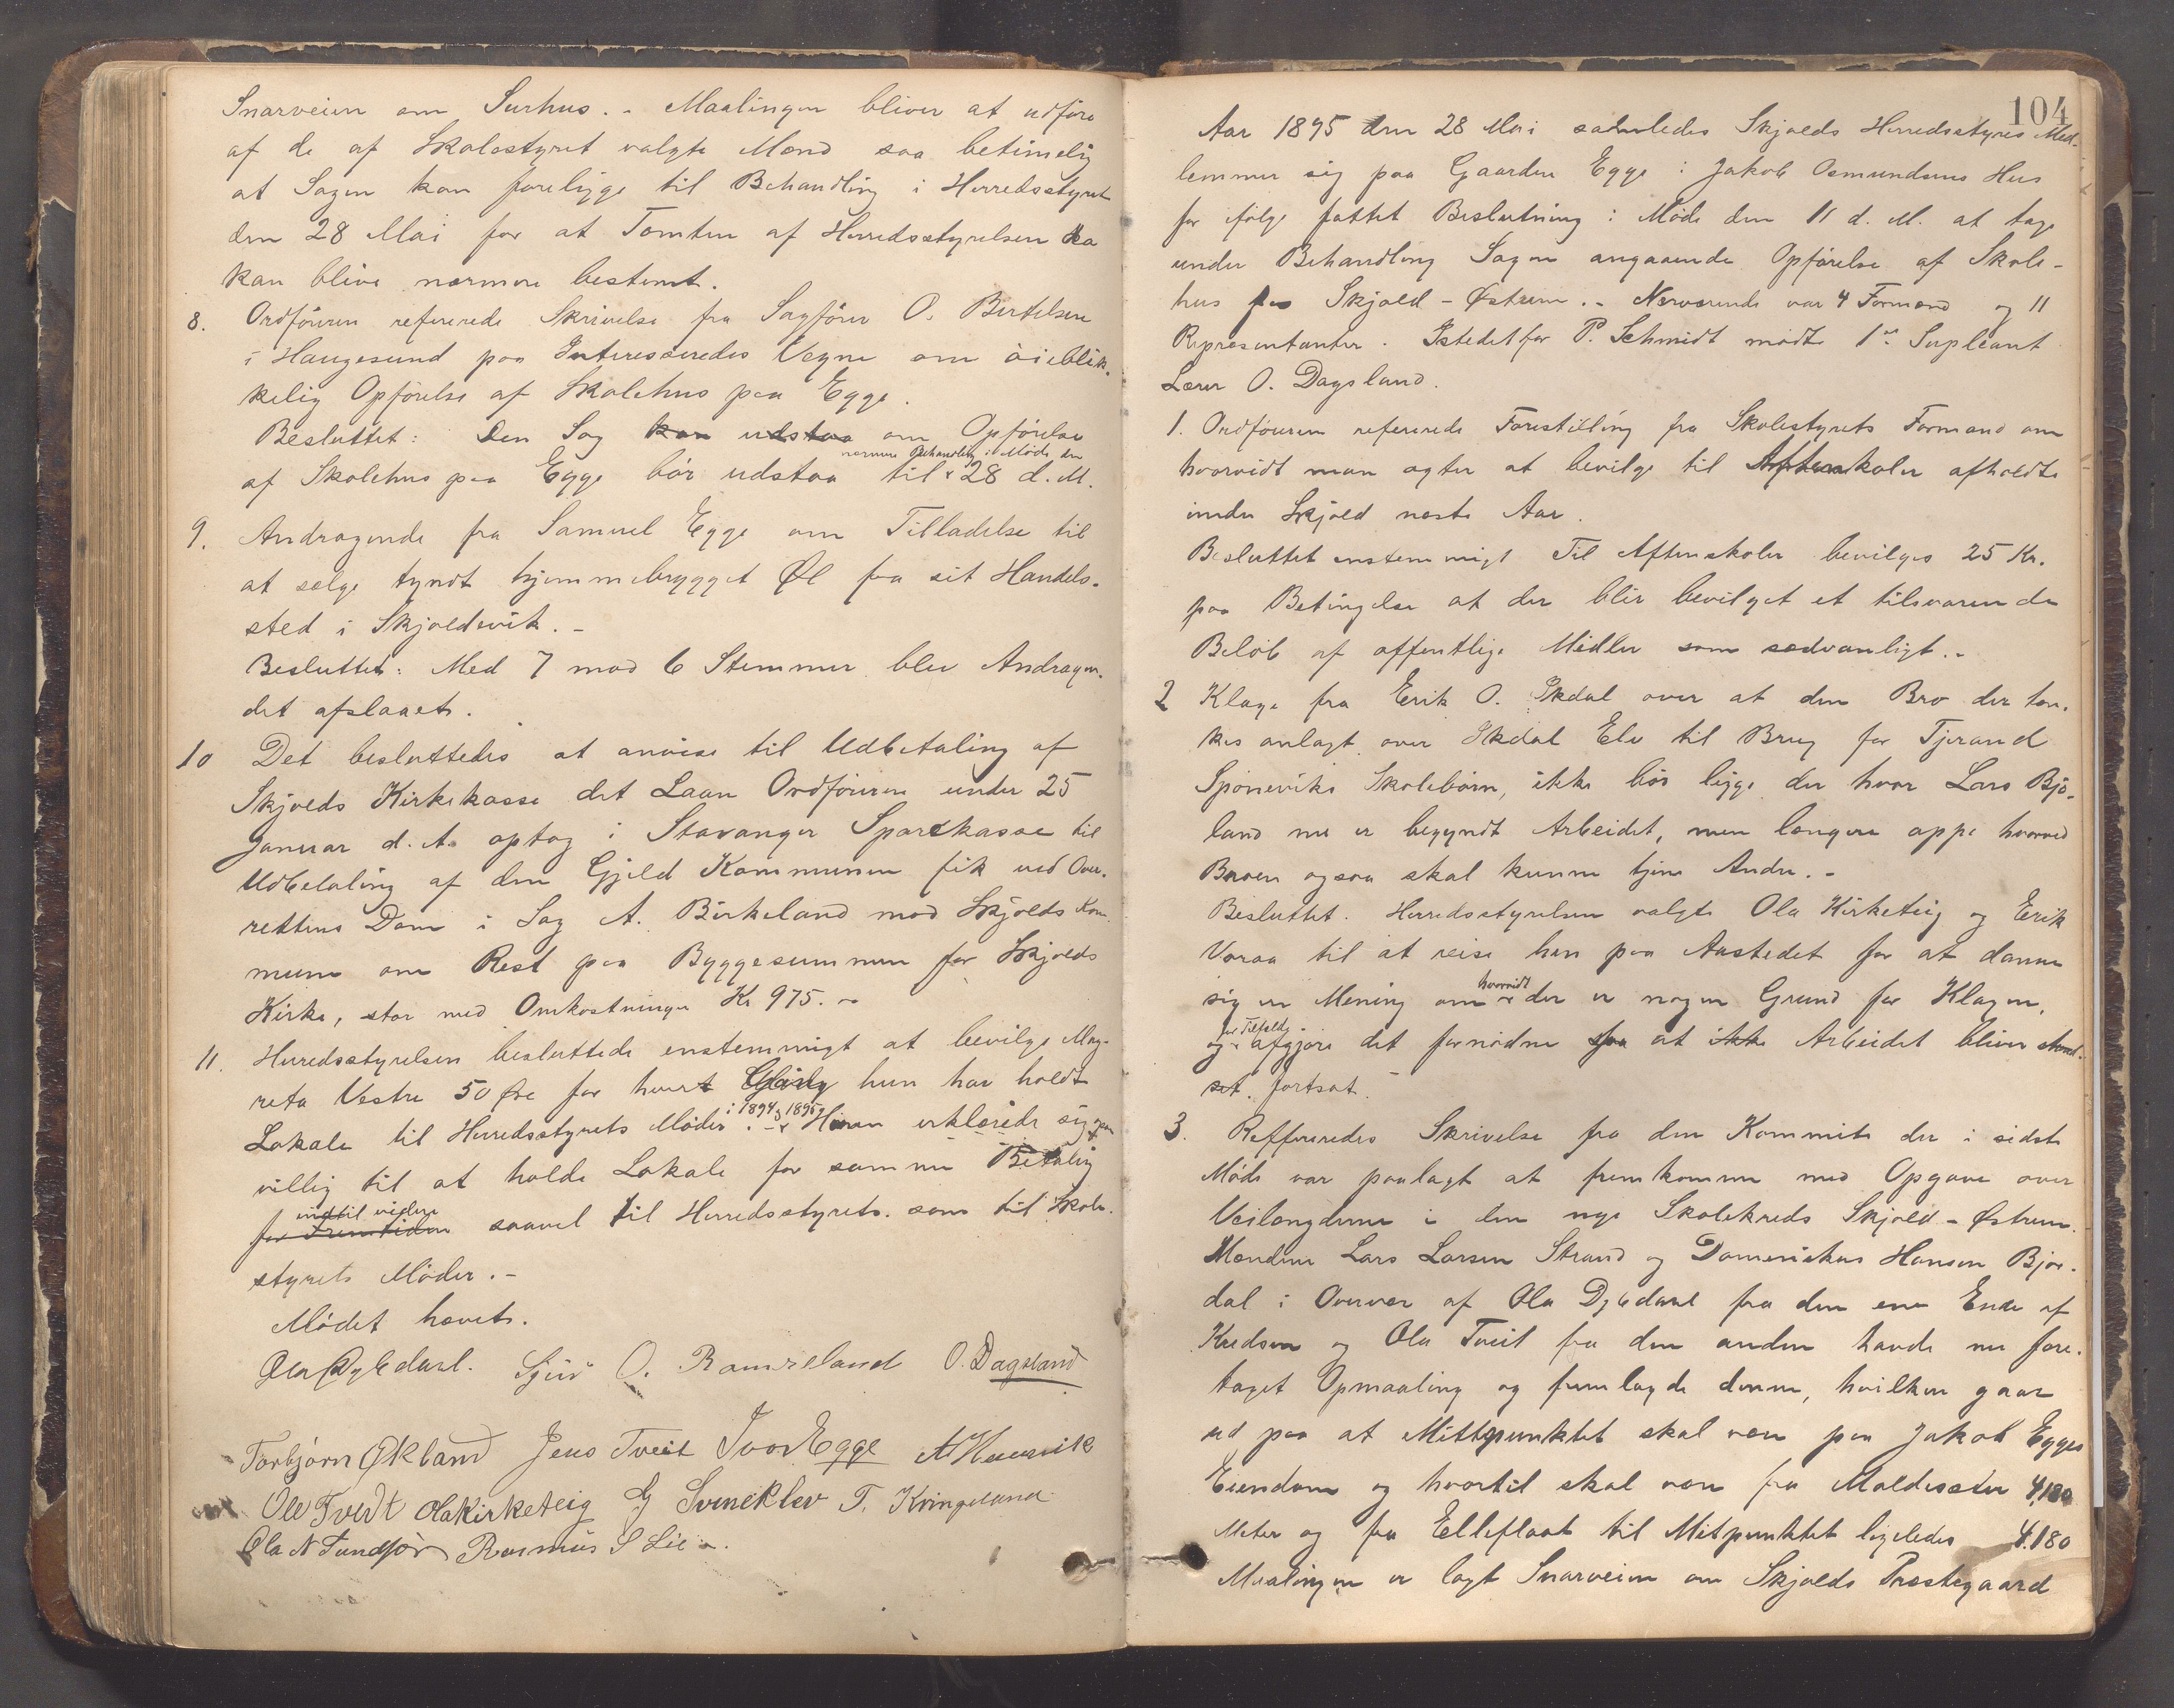 Snarveien om Surhus. - Maalingen bliver at udføre
af de af Skolestyret valgte Mænd saa betimelig
at Sagen kan foreligge til Behandling i Herredsstyret
den 28 Mai for at Tomten af Herredsstyrelsen ka
kan blive nærmere bestemt.
8. Ordføreren refererede Skrivelse fra Sagfører O. Bertelsen
i Haugesund paa Interesseredes Vegne om øieblik-
kelig Opførelse af Skolehus paa Egge.
Besluttet: Den Sag kan udstaa om Opførelse
nærmere Behandling i Møde den
af Skolehus paa Egge bør udstaa til 28 d. M.
9. Andragende fra Samuel Egge om Tilladelse til
at sælge tyndt hjemmebrygget Øl fra sit Handels-
sted i Skjoldevik. -
Besluttet: Med 7 mod 6 Stemmer blev Andragen-
det afslaaet.
10 Det besluttedes at anvise til Udbetaling af
Skjolds Kirkekasse det Laan Ordføreren under 25
Januar d. A. optog i Stavanger Sparekasse til
Udbetaling af den Gjeld Kommunen fik ved Over-
rettens Dom i Sag A. Birkeland mod Skjolds Kom-
mune om Rest paa Byggesummen for Skjolds
Kirke, stor med Omkostninger Kr 975. -
11. Herredsstyrelsen besluttede enstemmigt at bevilge Mag-
reta Vestre 50 Øre for hvert hun har holdt
Lokale til Herredsstyrets Møder i 1894 og 1895. - Hun erklærede sig
villig til at holde Lokale for samme Betaling
indtil videre
for Fremtiden saavel til Herredsstyrets som til Skole-
styrets Møder. -
Mødet hævet.
Ola Dybdael. Sjur O. Ramseland O. Dagsland
Torbjørn Økland Jens Tveit Ivar Egge
Ole Tvedt Ola Kirketeig G Svineklev T. Kringeland
Ola N Sundfør Rasmus S Lie
104
Aar 1895 den 28 Mai samledes Skjolds Herredsstyres Med-
lemmer sig paa Gaarden Egge i Jakob Osmundsens Hus
for ifølge fattet Beslutning i Møde den 11 d. M. at tage
under Behandling Sagen angaaende Opførelse af Skole-
hus for Skjold - Østrem. - Nærværende var 4 Formænd og 11
Repræsentanter. Istedetfor P. Schmidt mødte 1ste Supleant
Lærer O. Dagsland.
1. Ordføreren refererede Forestilling fra Skolestyrets Formand om
hvorvidt man agter at bevilge til Aftenskoler afholdte
inden Skjold næste Aar.
Besluttet enstemmigt Til Aftenskoler bevilges 25 Kr.
paa Betingelse at der blir bevilget et tilsvarende
Beløb af offentlige Midler som sædvanligt. -
2 Klage fra Erik O. Ikdal over at den Bro der tæn-
kes anlagt over Ikdal Elv til Brug for Tjerand
Spøneviks Skolebørn, ikke bør ligge der hvor Lars Bjø-
land nu er begyndt Arbeidet, men længere oppe hvorved
Broen ogsaa skal kunne tjene Andre. -
Besluttet. Herredsstyrelsen valgte Ola Kirketeig og Erik
Voraa til at reise hen paa Aastedet for at danne
hvorvidt
sig en Mening om der er nogen Grund for Klagen,
i Tilfælde
og afgjøre det fornødne saa at ikke Arbeidet bliver
fortsat.
3. Reffereredes Skrivelse fra den Kommite der i sidste
Møde var paalagt at fremkomme med Opgave over
Veilængderne i den nye Skolekreds Skjold - Østrem.
Mændene Lars Larsen Strand og Domenikus Hansen Bjør-
dal i Overvær af Ola Dybdael fra den ene Ende af
Kredsen og Ola Tveit fra den anden havde nu fore-
taget Opmaaling og fremlagde denne, hvilken gaar
ud paa at Mittpunktet skal være paa Jakob Egges
Eiendom og hvortil skal være fra Moldesæter 4,180
Meter og fra Elleflaat til Mitpunktet ligeledes 4.180
Maalingen er lagt Snarveien om Skjolds Præstegaard